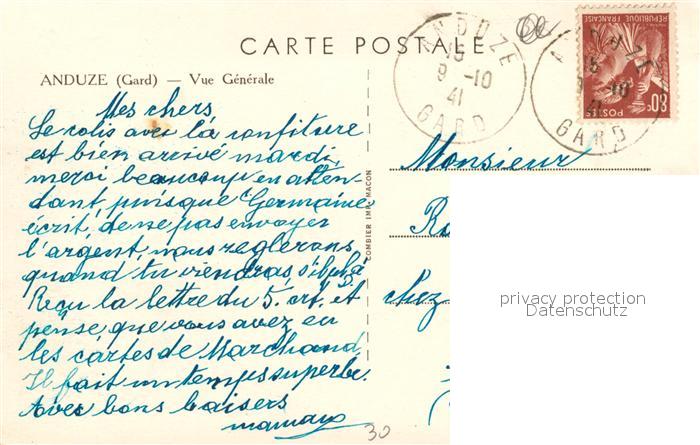 CARTE POSTALE
ANDUZE (Gard) — Vue Générale
Mes chers
Le colis avec la confiture
est bien arrivé mardi,
merci beaucoup en atten-
dant, puisque Germaine
écrit, de ne pas envoyer
l'argent, nous reglerons
quand tu viendras, s'il
Reçu la lettre du 5. crt. et
pense que vous avez eu
les cartes de Marchand.
Il fait un temps superbe.
Avec bons baisers
maman
30
COMBIER IMP. MACON
ANDUZE
15
9 -10
41
GARD
ANDUZE
15
9 -10
41
GARD
REPUBLIQUE FRANÇAISE
POSTES
80c
Monsieur
chez
privacy protection
Datenschutz